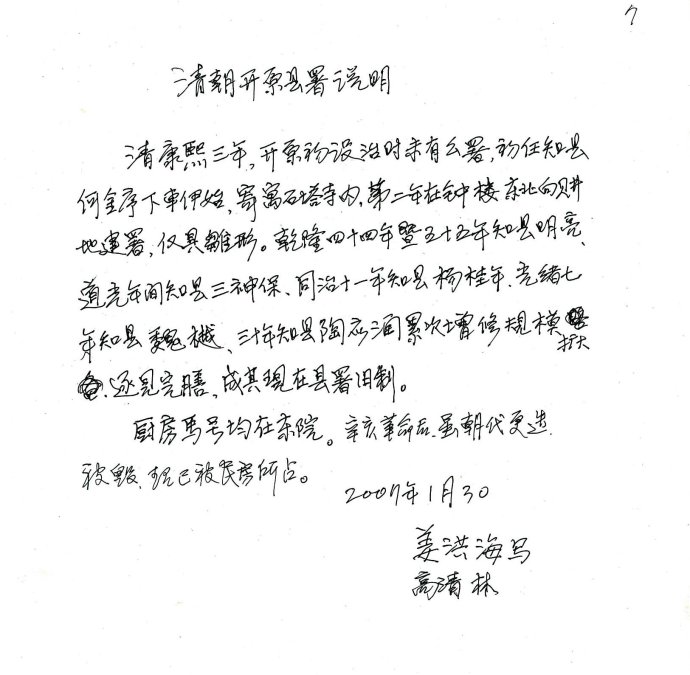 7
清朝开原县署说明
清康熙三年,开原初设治时未有公署,初任知县
何金序下車伊始,寄寓石塔寺内,第二年在钟楼东北向
地建署,仅具雛形。乾隆四十四年暨五十五年知县明亮、
道光年间知县三神保、同治十一年知县杨桂年、光绪七
年知县魏樾、三十年知县陶 累次增修規模
扩大
逐見完膳,成其現在县署旧制。
厨房馬号均在东院。辛亥革命后,虽朝代更迭
被毁、現已被民房所占。
2007年1月30
姜洪海写
高清林